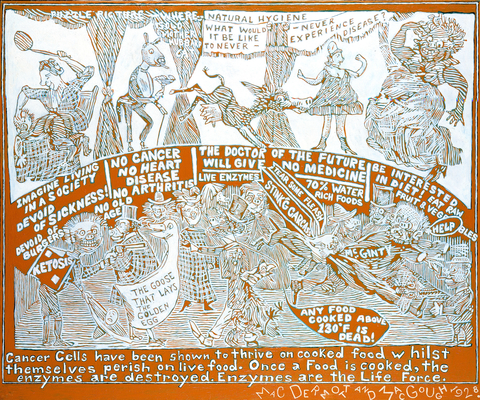 PUZZLE PICTURE: WHERE
IS THE
NATURAL HYGIENE
WHAT WOULD
IT BE LIKE
TO NEVER - - NEVER
EXPERIENCE DISEASE?
IMAGINE LIVING
IN A SOCIETY
DEVOID
OF SICKNESS!
DEVOID OF
BURGERS
NO CANCER
NO HEART
DISEASE
NO ARTHRITIS!
NO OLD
AGE
THE DOCTOR OF THE FUTURE
WILL GIVE NO MEDICINE
LIVE ENZYMES
STAR SIGNS PLEASE
STING CABBAGE
70% WATER
RICH FOODS
BE INTERESTED
IN DIET! EAT RAW
FRUIT & VEGE
BLES
HELP
MCGINTY
KETOSIS
THE GOOSE
THAT LAYS
THE
GOLDEN
EGG
ANY FOOD
COOKED ABOVE
130°F IS
DEAD!
Cancer Cells have been shown to thrive on cooked food whilst
themselves perish on live food. Once a Food is cooked, the
enzymes are destroyed. Enzymes are the Life Force.
MCDERMOTT AND MACGOUGH, 1928